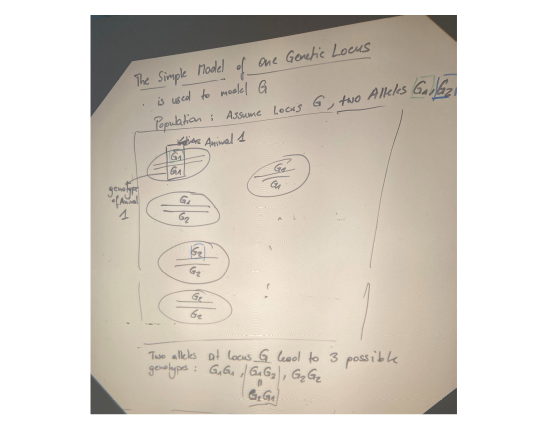 The Simple Model of one Genetic Locus
. is used to model G
Population : Assume Locus G , two Alleles G1, G2
Animal 1
G1
G1
genotype
of Animal
1
G1
G1
G1
G2
G2
G2
G2
G2
Two alleles at locus G lead to 3 possible
genotypes : G1G1 , G1G2 , G2G2
"
G2G1